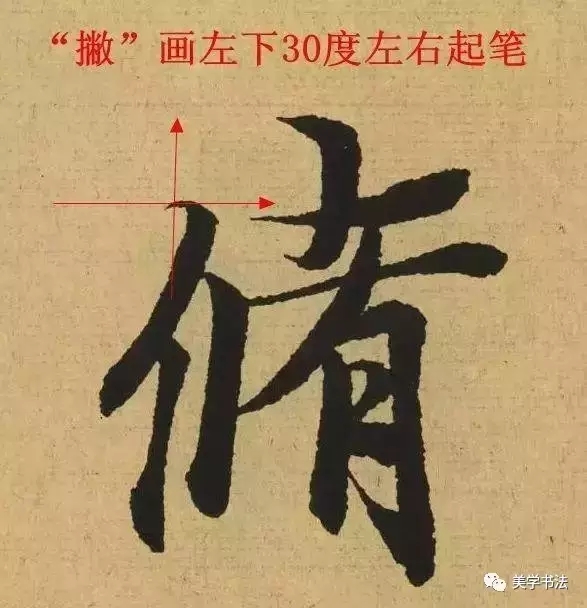 “撇”画左下30度左右起笔
脩
美学书法